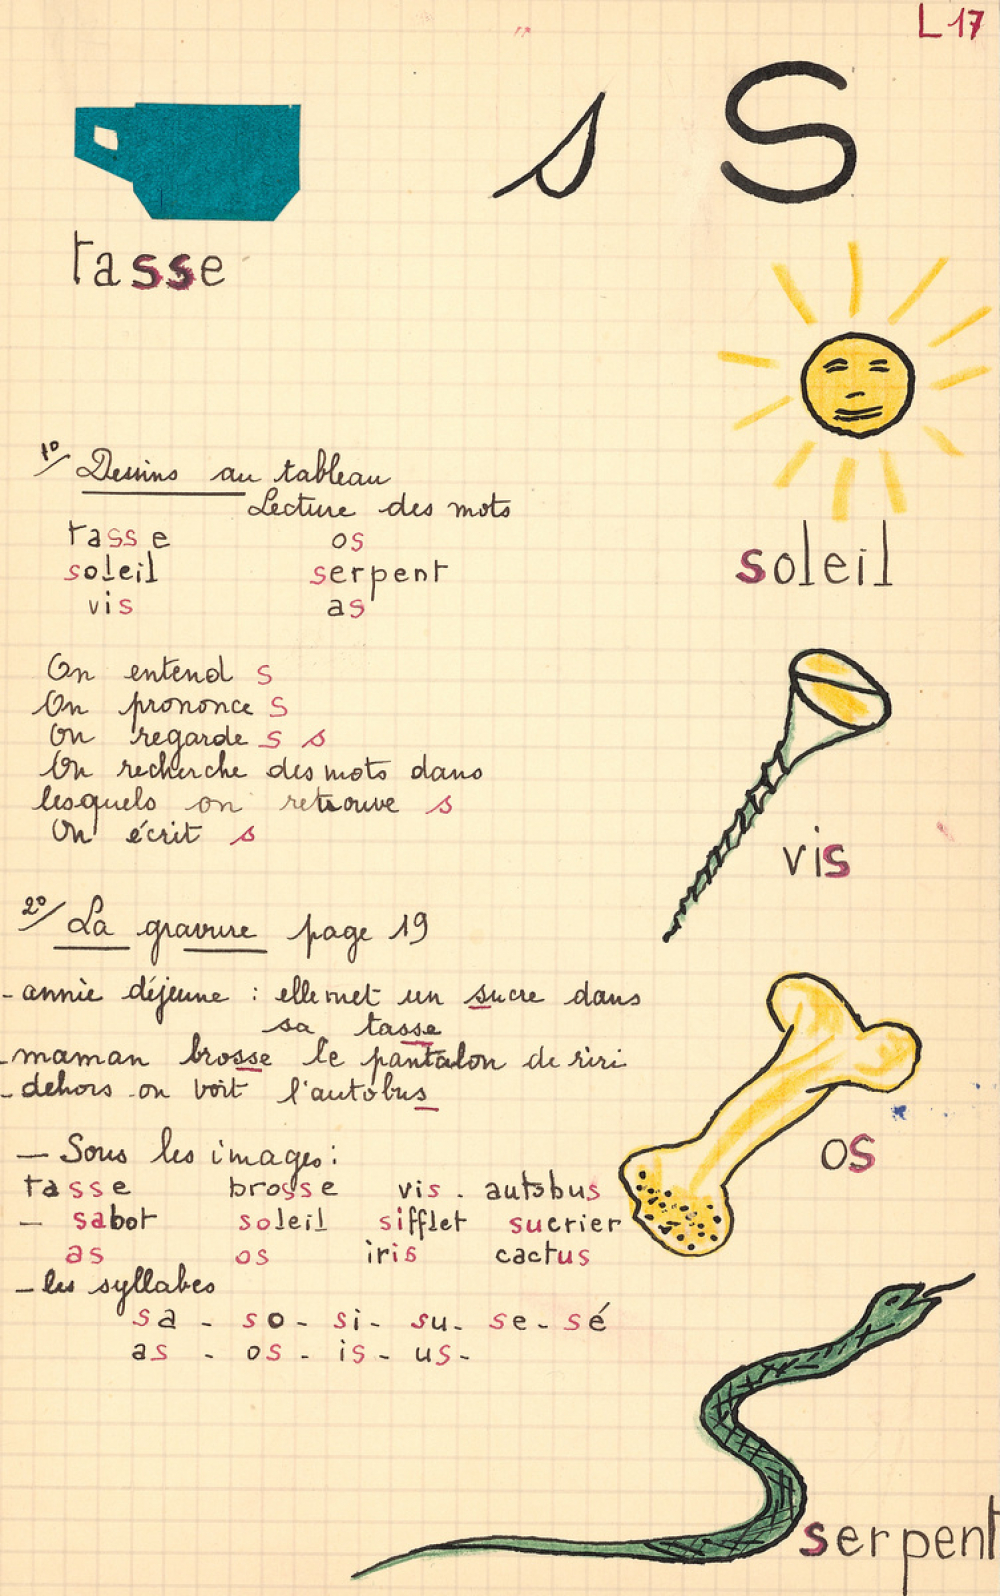 L 17
s S
tasse
soleil
1°/ Dessins au tableau
Lecture des mots
tasse os
soleil serpent
vis as
On entend s
On prononce s
On regarde s s
On recherche des mots dans
lesquels on retrouve s
On écrit s
vis
2°/ La gravure page 19
- annie déjeune : elle met un sucre dans
sa tasse
- maman brosse le pantalon de riri
- dehors on voit l'autobus
os
- Sous les images :
tasse brosse vis . autobus
- sabot soleil sifflet sucrier
as os iris cactus
- les syllabes
sa - so - si - su - se - sé
as - os - is - us -
serpent